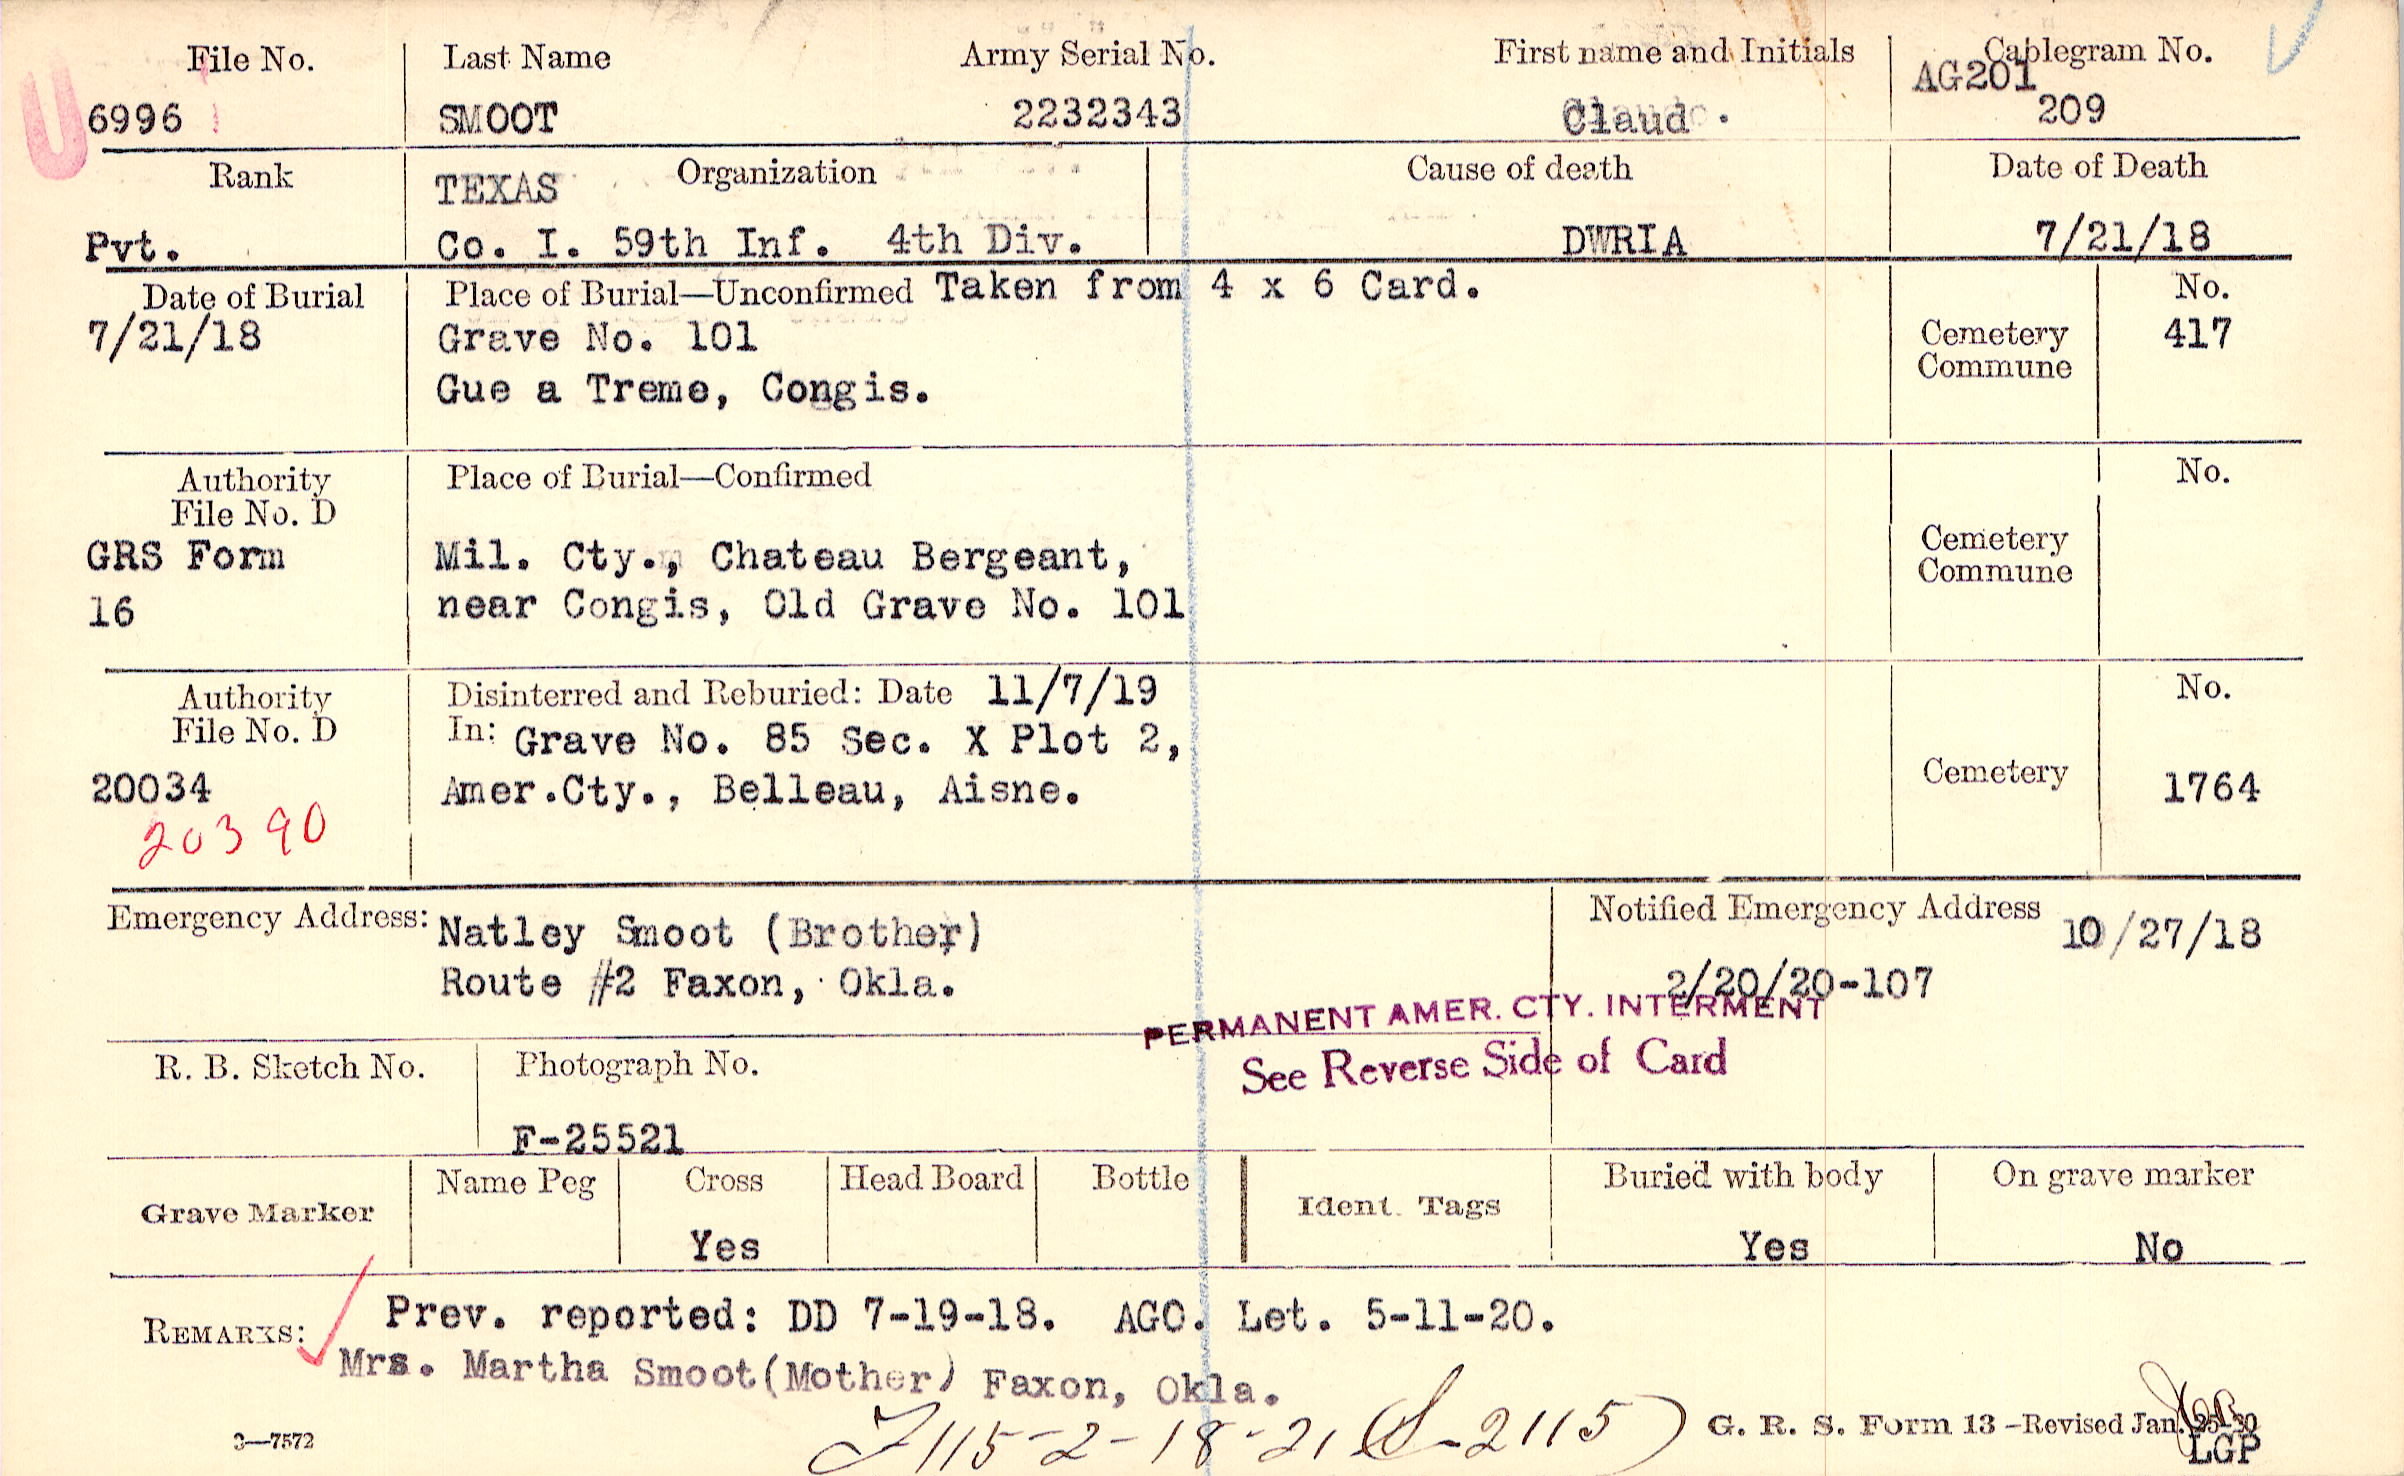 U
File No.
6996
Last Name
SMOOT
Army Serial No.
2232343
First name and Initials
Claud .
Cablegram No.
AG201
209
Rank
Pvt.
TEXAS Organization
Co. I. 59th Inf. 4th Div.
Cause of death
DWRIA
Date of Death
7/21/18
Date of Burial
7/21/18
Place of Burial—Unconfirmed Taken from 4 x 6 Card.
Grave No. 101
Gue a Treme, Congis.
Cemetery
Commune
No.
417
Authority
File No. D
GRS Form
16
Place of Burial—Confirmed
Mil. Cty., Chateau Bergeant,
near Congis, Old Grave No. 101
Cemetery
Commune
No.
Authority
File No. D
20034
20390
Disinterred and Reburied: Date 11/7/19
In: Grave No. 85 Sec. X Plot 2,
Amer.Cty., Belleau, Aisne.
Cemetery
No.
1764
Emergency Address: Natley Smoot (Brother)
Route #2 Faxon, Okla.
Notified Emergency Address 10/27/18
2/20/20-107
PERMANENT AMER. CTY. INTERMENT
See Reverse Side of Card
R. B. Sketch No.
Photograph No.
F-25521
Grave Marker
Name Peg
Cross
Yes
Head Board
Bottle
Ident. Tags
Buried with body
Yes
On grave marker
No
REMARKS: Prev. reported: DD 7-19-18. AGO. Let. 5-11-20.
Mrs. Martha Smoot(Mother) Faxon, Okla.
115-2-18-21 (S-2115)
3—7572
G. R. S. Form 13 –Revised Jan.
LGP